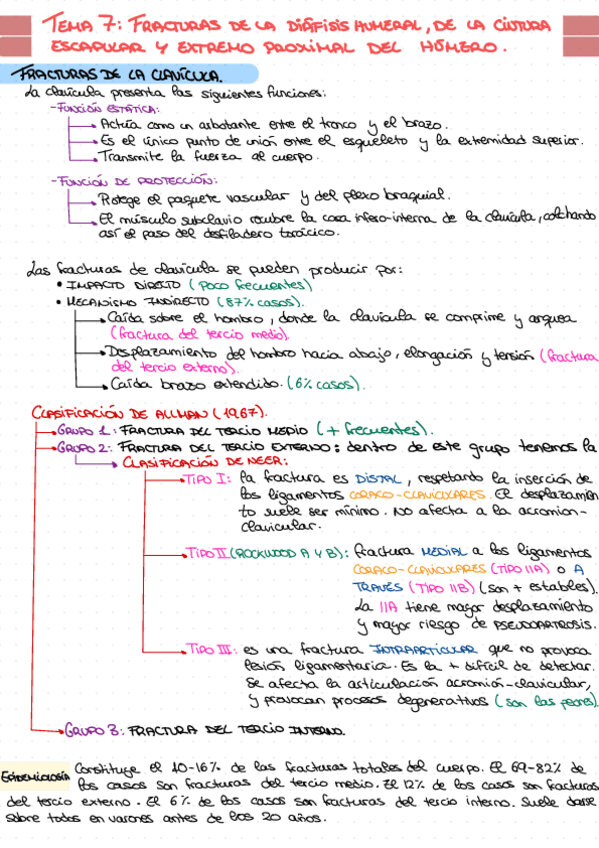 TEMA 7: FRACTURAS DE LA DIÁFISIS HUMERAL, DE LA CINTURA
ESCAPULAR Y EXTREMO PROXIMAL DEL HÚMERO.
FRACTURAS DE LA CLAVÍCULA.
La clavícula presenta las siguientes funciones:
-FUNCIÓN ESTÁTICA:
Actúa como un arbotante entre el tronco y el brazo.
Es el único punto de unión entre el esqueleto y la extremidad superior.
Transmite la fuerza al cuerpo.
-FUNCIÓN DE PROTECCIÓN:
Protege el paquete vascular y del plexo braquial.
El músculo subclavio recubre la cara infero-interna de la clavícula, colchando
así el paso del desfiladero torácico.
Las fracturas de clavícula se pueden producir por:
• IMPACTO DIRECTO (poco frecuentes)
• MECANISMO INDIRECTO (87% casos).
Caída sobre el hombro, donde la clavícula se comprime y arquea
(fractura del tercio medio).
Desplazamiento del hombro hacia abajo, elongación y tensión (fractura
del tercio externo).
Caída brazo extendido. (6% casos).
CLASIFICACIÓN DE ALLMAN (1967).
GRUPO 1: FRACTURA DEL TERCIO MEDIO (+ frecuentes).
GRUPO 2: FRACTURA DEL TERCIO EXTERNO: dentro de este grupo tenemos la
CLASIFICACIÓN DE NEER:
TIPO I: la fractura es DISTAL, respetando la inserción de
los ligamentos CORACO-CLAVICULARES. El desplazamien
to suele ser mínimo. No afecta a la acromion-
clavicular.
TIPO II (ROCKWOOD A Y B): fractura MEDIAL a los ligamentos
CORACO-CLAVICULARES (TIPO IIA) o A
TRAVÉS (TIPO IIB) (son + estables).
La IIA tiene mayor desplazamiento
y mayor riesgo de PSEUDOARTROSIS.
TIPO III: es una fractura INTRAARTICULAR que no provoca
lesión ligamentaria. Es la + difícil de detectar.
Se afecta la articulación acromion-clavicular,
y provocan procesos degenerativos (son las peores).
GRUPO 3: FRACTURA DEL TERCIO INTERNO.
EPIDEMIOLOGÍA Constituye el 10-16% de las fracturas totales del cuerpo. El 69-82% de
los casos son fracturas del tercio medio. El 12% de los casos son fracturas
del tercio externo. El 6% de los casos son fracturas del tercio interno. Suele darse
sobre todos en varones antes de los 20 años.